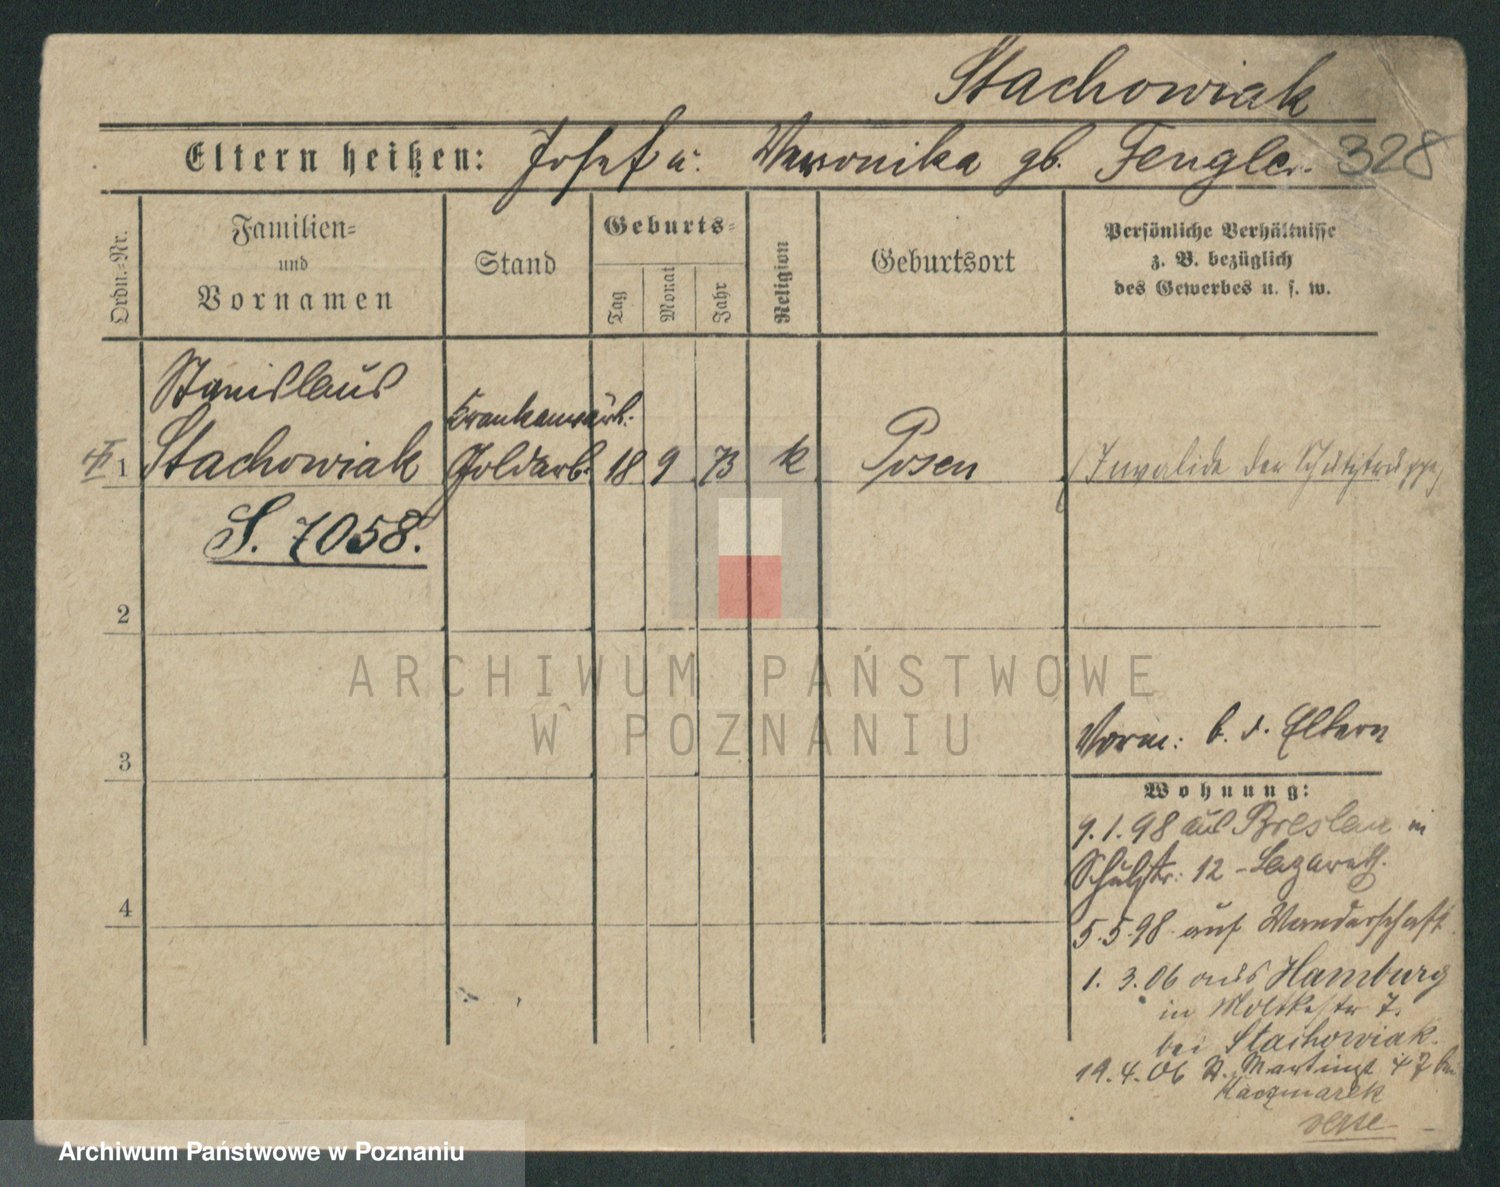 Stachowiak
Eltern heißen: Josef u. Veronika gb. Fengler. 328
Ordn.=Nr.
Familien=
und
Vornamen
Stand
Geburts=
Tag
Monat
Jahr
Religion
Geburtsort
Persönliche Verhältnisse
z. B. bezüglich
des Gewerbes u. s. w.
Stanislaus
1 Stachowiak Goldarb. 18 9 73 k Posen (Invalide der Schutztruppe)
S. 7058.
2
ARCHIWUM PAŃSTWOWE
W POZNANIU
Vorm: b. d. Eltern
3
Wohnung:
9.1.98 aus Breslau in
Schulstr. 12 - Lazareth.
4
5.5.98. auf Wanderschaft.
1.3.06 aus Hamburg
in Moltkestr 7.
bei Stachowiak.
19.4.06 St. Martinst 47 bei
Kaczmarek
Archiwum Państwowe w Poznaniu